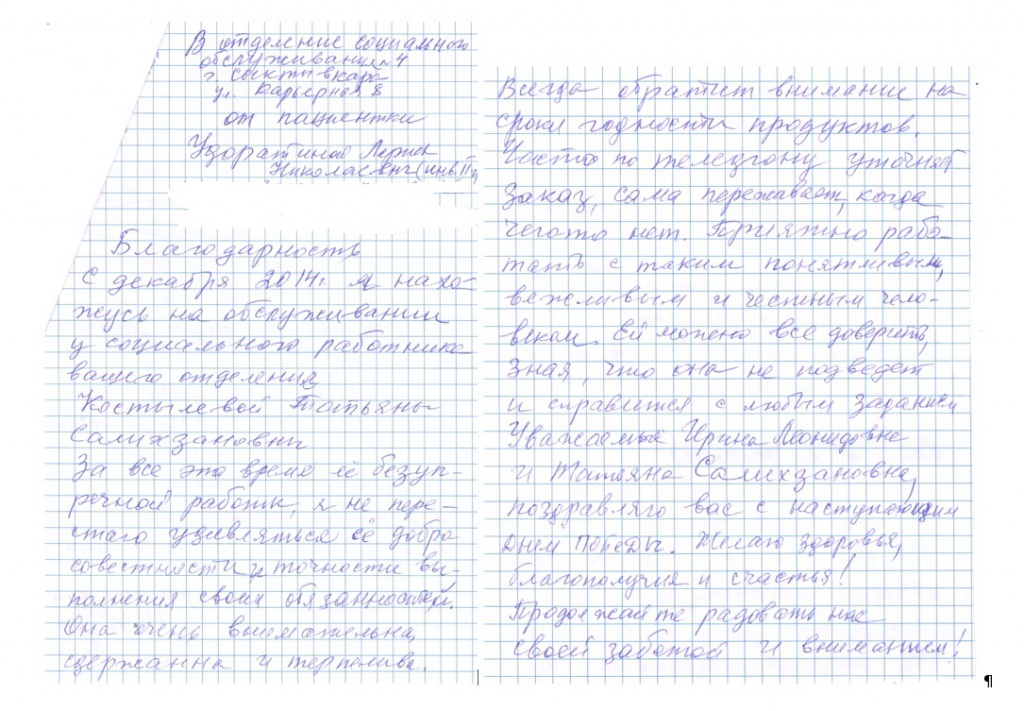 В отделение социального
обслуживания 4
г. Сыктывкара
ул. Карьерная 8
от пациентки
Николаевны (инв. II
Благодарность
С декабря 2014г. я нахо-
жусь на обслуживании
у социального работника
вашего отделения
Костылевой Татьяны
Салихзановны
За все это время её безуп-
речной работы, я не пере-
стаю удивляться её добро
совестности и точности вы-
полнения своих обязанностей.
Она очень внимательна,
сдержанна и терпелива.
Всегда обратит внимание на
сроки годности продуктов.
Часто по телефону уточняет
заказ, сама переживает, когда
чегото нет. Приятно рабо-
тать с таким понятливым,
вежливым и честным чело-
веком. Ей можно все доверить,
зная, что она не подведет
и справится с любым заданием
Уважаемые Ирина Леонидовна
и Татьяна Салихзановна,
поздравляю вас с наступающим
днем Победы. Желаю здоровья,
благополучия и счастья!
Продолжайте радовать нас
своей заботой и вниманием!
¶